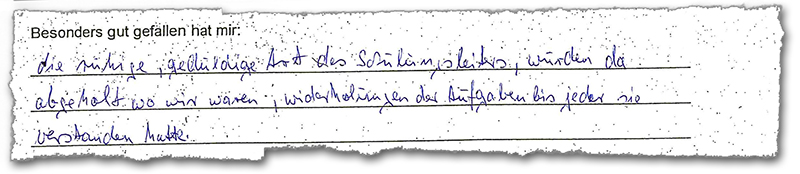 Besonders gut gefallen hat mir:
die ruhige, geduldige Art des Schulungsleiters, wurden da
abgeholt wo wir waren, widerholungen der Aufgaben bis jeder sie
verstanden hatte.